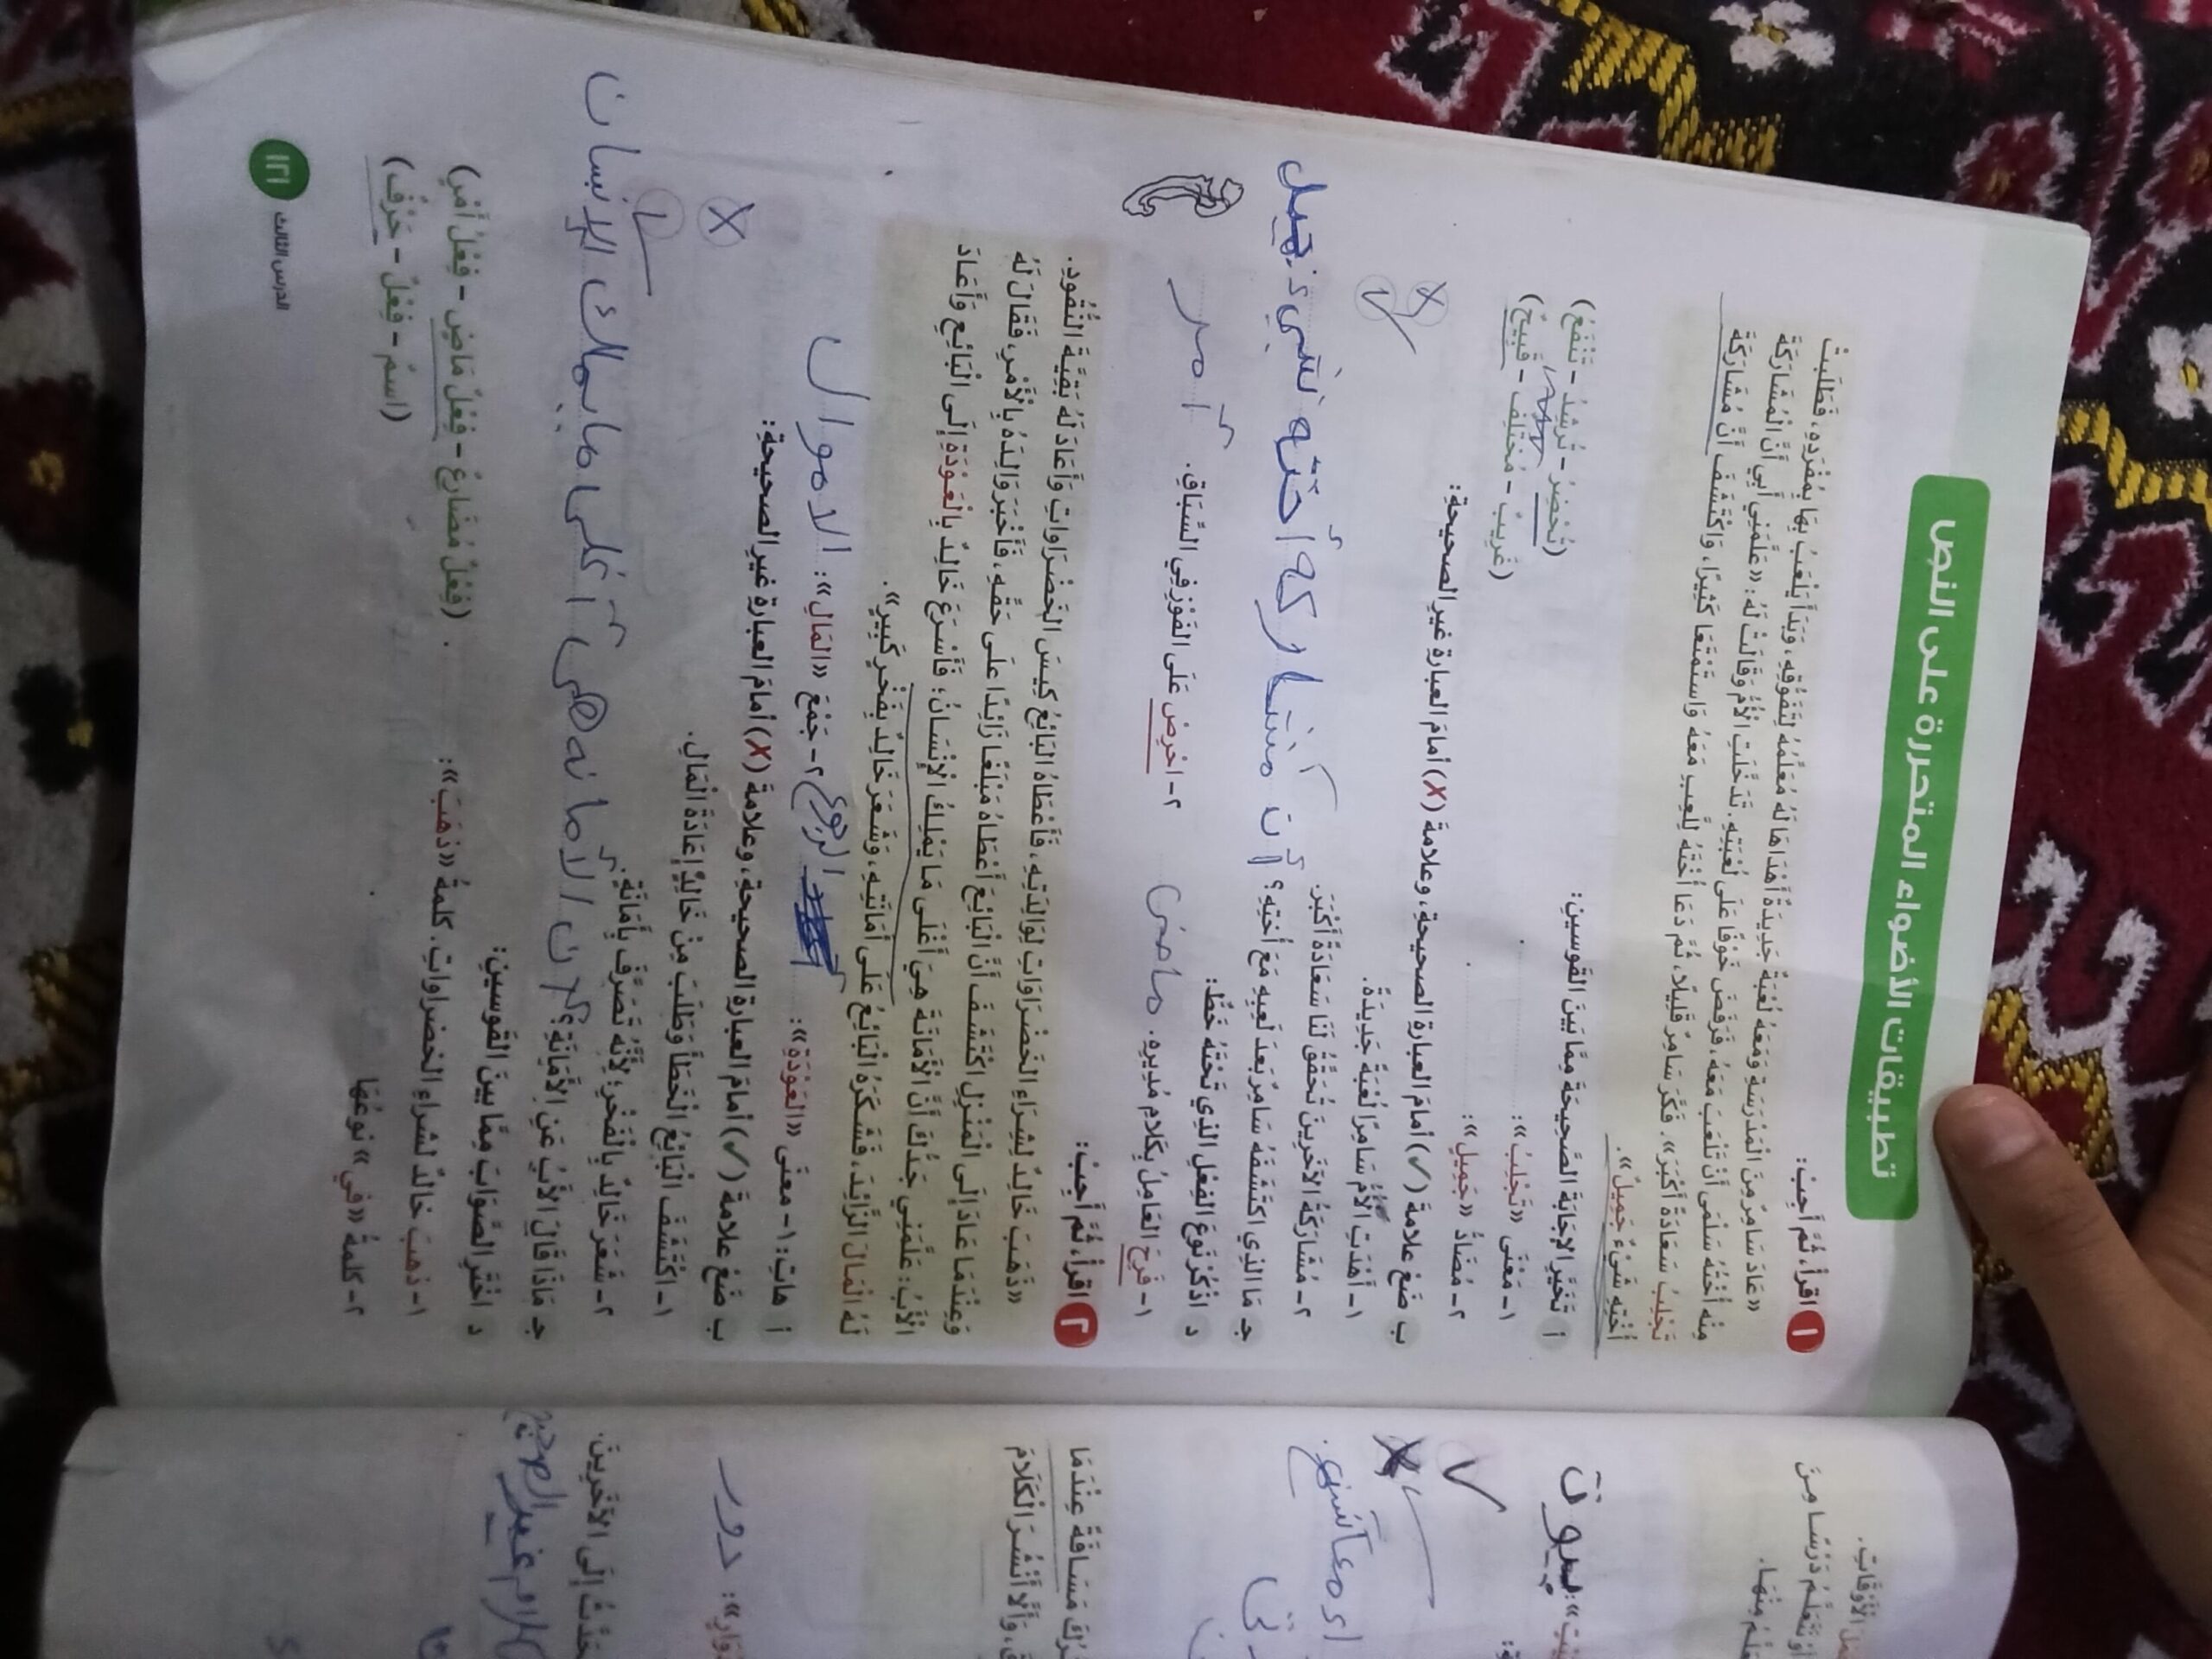 تطبيقات الأضواء المتحررة على النص
١ اقرأ، ثُمَّ أَجِبْ:
«عَادَ سَامِرٌ مِنَ الْمَدْرَسَةِ وَمَعَهُ لُعْبَةٌ جَدِيدَةٌ أَهْدَاهَا لَهُ مُعَلِّمُهُ لِتَفَوُّقِهِ، وَبَدَأَ يَلْعَبُ بِهَا بِمُفْرَدِهِ، فَطَلَبَتْ
مِنْهُ أُخْتُهُ سَلْمَى أَنْ تَلْعَبَ مَعَهُ، فَرَفَضَ خَوْفًا عَلَى لُعْبَتِهِ. تَدَخَّلَتِ الْأُمُّ وَقَالَتْ لَهُ: «عَلَّمَنِي أَبِي أَنَّ الْمُشَارَكَةَ
تَجْلِبُ سَعَادَةً أَكْبَرَ». فَكَّرَ سَامِرٌ قَلِيلًا، ثُمَّ دَعَا أُخْتَهُ لِلَّعِبِ مَعَهُ وَاسْتَمْتَعَا كَثِيرًا، وَاكْتَشَفَ أَنَّ مُشَارَكَةَ
أُخْتِهِ شَيْءٌ جَمِيلٌ».
أ تَخَيَّرِ الإجَابَةَ الصَّحِيحَةَ مِمَّا بَينَ القَوسينِ:
١- مَعْنَى «تَجْلِبُ»: (تُحْضِرُ - تُرْشِدُ - تَنْفَعُ)
٢- مُضَادُّ «جَمِيلٍ»: (غَرِيبٌ - مُخْتَلِفٌ - قَبِيحٌ)
ب ضَعْ علامةَ (✓) أمامَ العبارةِ الصحيحةِ، وعلامةَ (X) أمامَ العبارةِ غيرِ الصحيحةِ:
١- أَهْدَتِ الْأُمُّ سَامِرًا لُعْبَةً جَدِيدَةً. X
٢- مُشَارَكَةُ الْآخَرِينَ تُحَقِّقُ لَنَا سَعَادَةً أَكْبَرَ. ✓
جـ مَا الذي اكْتَشَفَهُ سَامِرٌ بَعدَ لَعِبِهِ مَعَ أُختِهِ؟ أن مشاركة أخته شيء جميل
د اذْكُرْ نَوعَ الفِعْلِ الذي تَحْتَهُ خَطٌّ:
١- فَرِحَ العَامِلُ بِكَلامِ مُدِيرِهِ. ماضى ٢- احْرِصْ عَلَى الفَوْزِ فِي السِّبَاقِ. أمر
٢ اقرأ، ثُمَّ أَجِبْ:
«ذَهَبَ خَالِدٌ لِشِرَاءِ الْخَضْرَاوَاتِ لِوَالِدَتِهِ، فَأَعْطَاهُ الْبَائِعُ كِيسَ الْخَضْرَاوَاتِ وَأَعَادَ لَهُ بَقِيَّةَ النُّقُودِ.
وَعِنْدَمَا عَادَ إِلَى الْمَنْزِلِ اكْتَشَفَ أَنَّ الْبَائِعَ أَعْطَاهُ مَبْلَغًا زَائِدًا عَلَى حَقِّهِ، فَأَخْبَرَ وَالِدَهُ بِالْأَمْرِ، فَقَالَ لَهُ
الْأَبُ: عَلَّمَنِي جَدُّكَ أَنَّ الْأَمَانَةَ هِيَ أَغْلَى مَا يَمْلِكُ الْإِنْسَانُ؛ فَأَسْرَعَ خَالِدٌ بِالْعَوْدَةِ إِلَى الْبَائِعِ وَأَعَادَ
لَهُ الْمَالَ الزَّائِدَ، فَشَكَرَهُ الْبَائِعُ عَلَى أَمَانَتِهِ، وَشَعَرَ خَالِدٌ بِفَخْرٍ كَبِيرٍ».
أ هاتِ: ١- معنَى «العَوْدَةِ»: الرجوع ٢- جَمْعَ «المَالِ»: الاموال
ب ضَعْ علامةَ (✓) أمامَ العبارةِ الصحيحةِ، وعلامةَ (X) أمامَ العبارةِ غيرِ الصحيحةِ:
١- اكْتَشَفَ الْبَائِعُ الْخَطَأَ وَطَلَبَ مِنْ خَالِدٍ إِعَادَةَ الْمَالِ. X
٢- شَعَرَ خَالِدٌ بِالْفَخْرِ؛ لِأَنَّهُ تَصَرَّفَ بِأَمَانَةٍ. ✓
جـ مَاذَا قَالَ الأَبُ عَنِ الأَمَانَةِ؟ أن الأمانه هى أغلى ما يملك الإنسان
د اخْتَرِ الصَّوَابَ مِمَّا بينَ القَوسينِ:
١- ذهبَ خالدٌ لشراءِ الخضراواتِ. كلمةُ «ذَهَبَ»: (فِعْلٌ مُضَارِعٌ - فِعْلٌ مَاضٍ - فِعْلُ أَمْرٍ)
٢- كلمةُ «فِي» نوعُهَا (اسْمٌ - فِعْلٌ - حَرْفٌ)
١٢١ الدرس الثالث